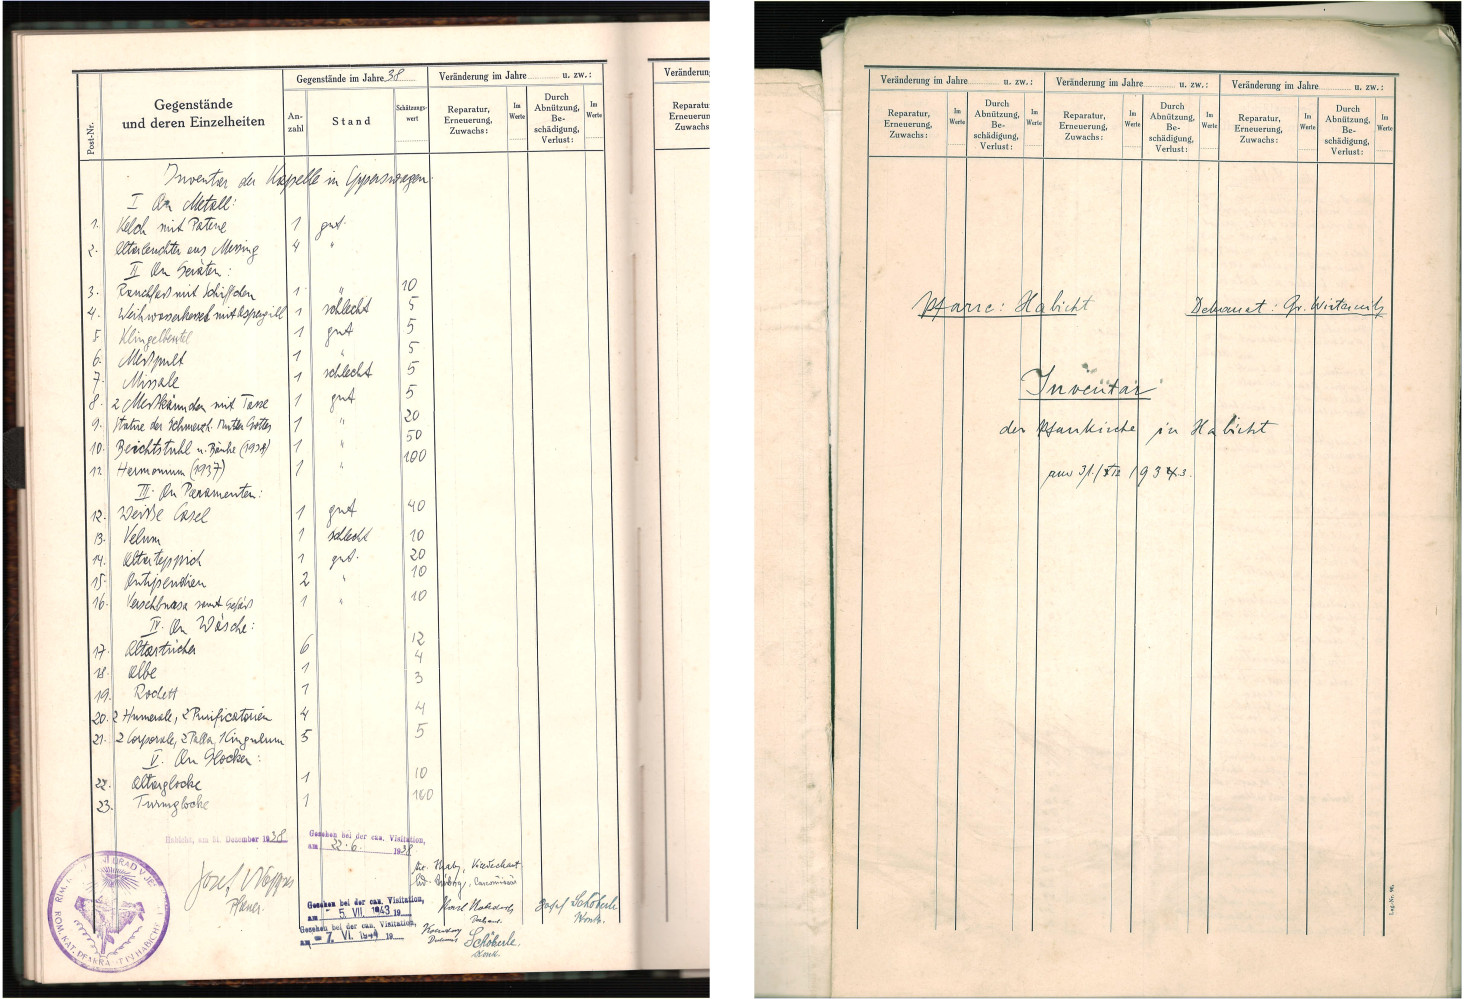 Post-Nr.
Gegenstände
und deren Einzelheiten
Gegenstände im Jahre 38
An-
zahl
Stand
Schätzungs-
wert
Veränderung im Jahre u. zw.:
Reparatur,
Erneuerung,
Zuwachs:
Im
Werte
Durch
Abnützung,
Be-
schädigung,
Verlust:
Im
Werte
Inventar der Kapelle in
I An Metall:
1. Kelch mit Patene 1 gut.
2. Altarleuchter aus Messing 4 "
II An Geräten:
3. Rauchfass mit Schiffchen 1 " 10
4. Weihwasserkessel mit Aspergill 1 schlecht 5
5 Klingelbeutel 1 gut 5
6. Messpult 1 " 5
7. Missale 1 schlecht 5
8. 2 Messkännchen mit Tasse 1 gut 5
9. Statue der Schmerzh. Mutter Gottes 1 " 20
10. Beichtstuhl u. Bänke (1938) 1 " 50
11. Hermonium (1937) 1 " 100
III. An Paramenten:
12. Weisse Casel 1 gut 40
13. Velum 1 schlecht 10
14. Altarteppich 1 gut. 20
15. Antipendien 2 " 10
16. samt 1 " 10
IV. An Wäsche:
17. Altartücher 6 12
18. Albe 1 4
19. Rochett 1 3
20. 2 Humerale, 2 Purificatorien 4 4
21. 2 Corporale, 2 Palla, 1 Cingulum 5 5
V. An Glocken:
22. Altarglocke 1 10
23. Turmglocke 1 100
Habicht, am 31. Dezember 1938
Gesehen bei der can. Visitation,
am 22.6. 1938
Josef
Pfarrer.
Gesehen bei der can. Visitation,
am 5. VII. 1943 19
Josef Schöberle
Gesehen bei der can. Visitation,
am 7. VI. 1944 19
Schöberle
Veränderung im Jahre u. zw.:
Veränderung im Jahre u. zw.:
Veränderung im Jahre u. zw.:
Reparatur,
Erneuerung,
Zuwachs:
Im
Werte
Durch
Abnützung,
Be-
schädigung,
Verlust:
Im
Werte
Reparatur,
Erneuerung,
Zuwachs:
Im
Werte
Durch
Abnützung,
Be-
schädigung,
Verlust:
Im
Werte
Reparatur,
Erneuerung,
Zuwachs:
Im
Werte
Durch
Abnützung,
Be-
schädigung,
Verlust:
Im
Werte
Pfarre: Habicht
Dekanat: Gr. Wisternitz
Inventar
der Pfarrkirche in Habicht